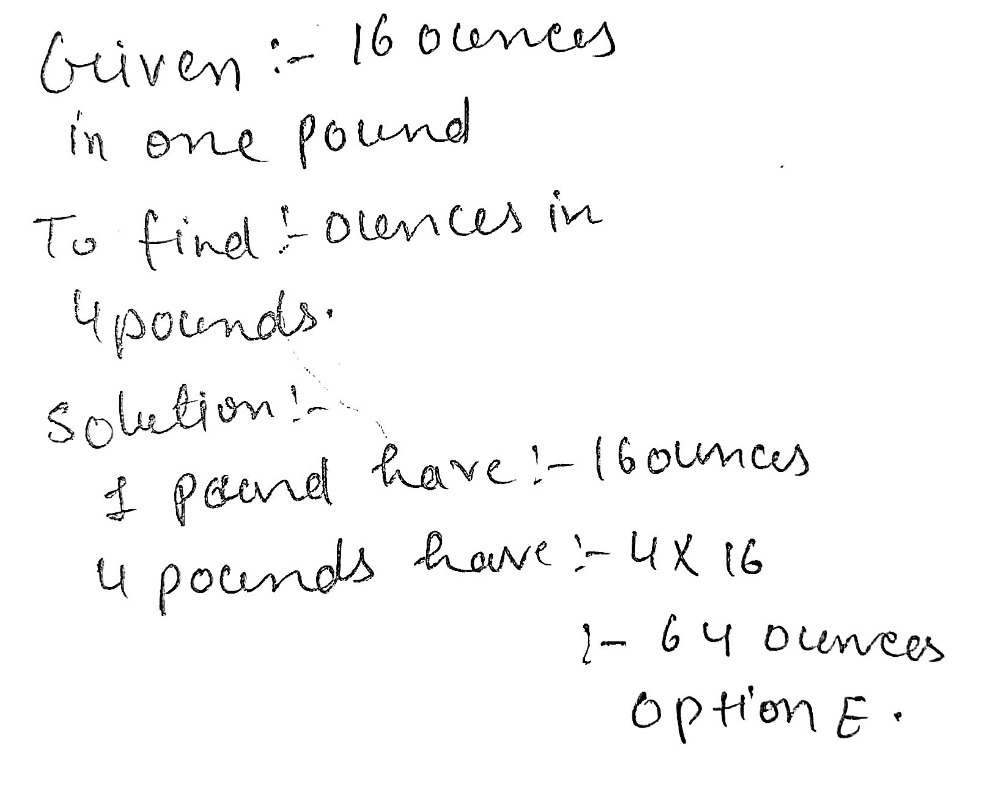 Given :- 16 ounces
in one pound
To find :- ounces in
4 pounds.
Solution :-
1 pound have :- 16 ounces
4 pounds have :- 4 X 16
:- 64 ounces
option E.